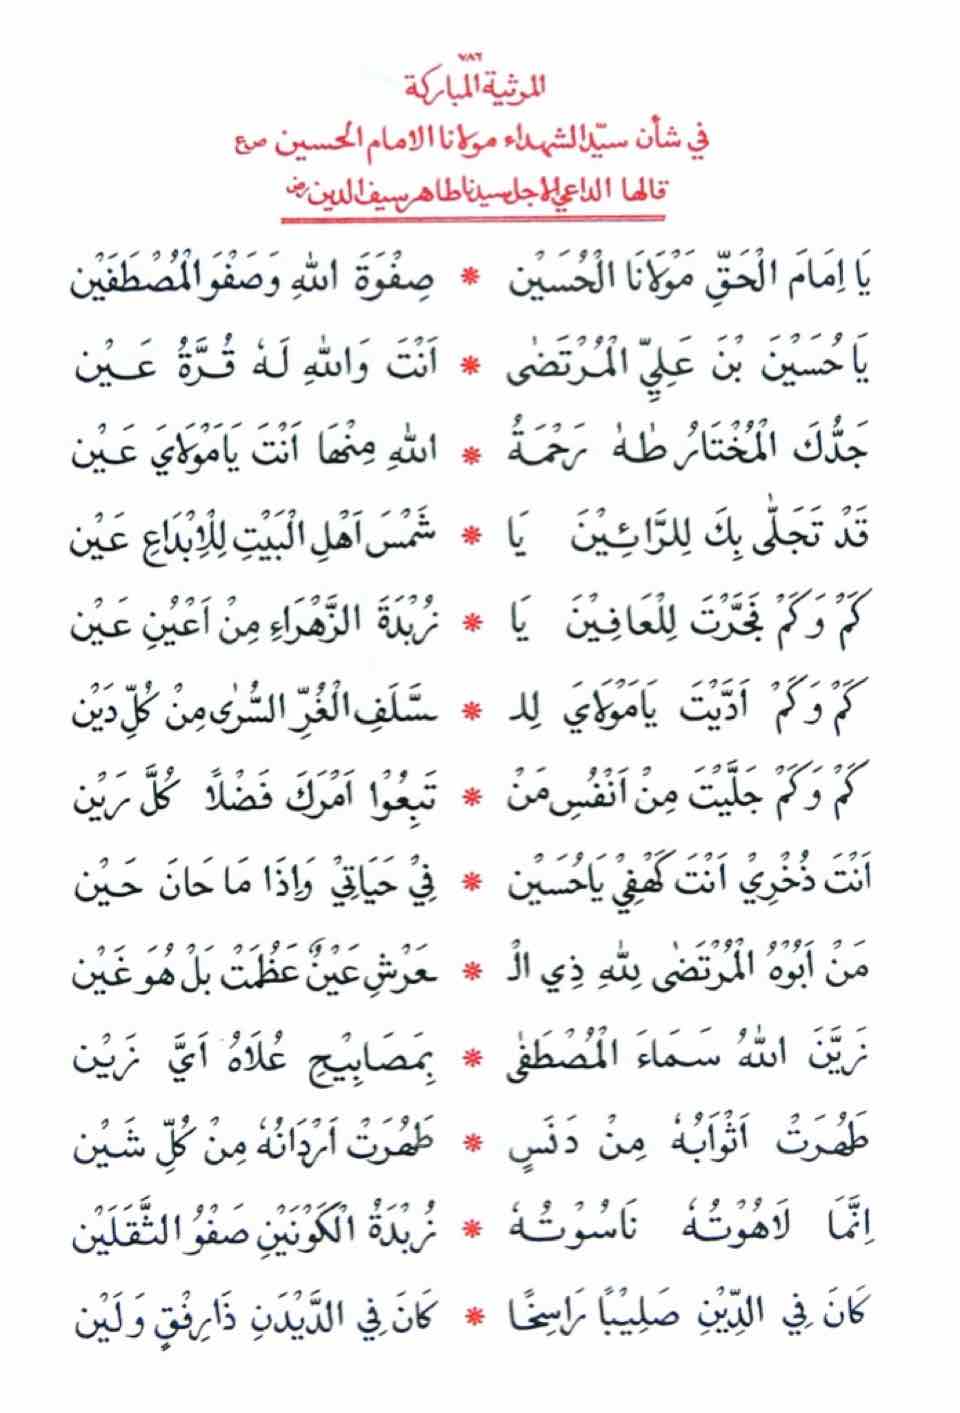 ٧٨٦
المرثية المباركة
في شأن سيّد الشهداء مولانا الامام الحسين صع
قالها الداعي الاجل سيدنا طاهر سيف الدين رض
يَا اِمَامَ الْحَقِّ مَوْلَانَا الْحُسَيْن * صِفْوَةَ اللهِ وَصَفْوَ الْمُصْطَفَيْن
يَا حُسَيْنَ بْنَ عَلِيِّ الْمُرْتَضٰى * اَنْتَ وَاللهِ لَهٗ قُرَّةُ عَيْن
جَدُّكَ الْمُخْتَارُ طٰهٰ رَحْمَةُ * اللهِ مِنْهَا اَنْتَ يَامَوْلَايَ عَيْن
قَدْ تَجَلّٰى بِكَ لِلرَّائِيْنَ يَا * شَمْسَ اَهْلِ الْبَيْتِ لِلْاِبْدَاعِ عَيْن
كَمْ وَكَمْ فَجَّرْتَ لِلْعَافِيْنَ يَا * زُبْدَةَ الزَّهْرَاءِ مِنْ اَعْيُنِ عَيْن
كَمْ وَكَمْ اَدَّيْتَ يَامَوْلَايَ لِلـ * ـسَّلَفِ الْغُرِّ السُّرٰى مِنْ كُلِّ دَيْن
كَمْ وَكَمْ جَلَّيْتَ مِنْ اَنْفُسِ مَنْ * تَبِعُوْا اَمْرَكَ فَضْلًا كُلَّ رَيْن
اَنْتَ ذُخْرِيْ اَنْتَ كَهْفِيْ يَاحُسَيْن * فِيْ حَيَاتِيْ وَاِذَا مَا حَانَ حَيْن
مَنْ اَبُوْهُ الْمُرْتَضٰى لِلّٰهِ ذِي الْـ * ـعَرْشِ عَيْنٌ عَظُمَتْ بَلْ هُوَ غَيْن
زَيَّنَ اللهُ سَمَاءَ الْمُصْطَفٰى * بِمَصَابِيْحِ عُلَاهُ اَيَّ زَيْن
طَهُرَتْ اَثْوَابُهٗ مِنْ دَنَسٍ * طَهُرَتْ اَرْدَانُهٗ مِنْ كُلِّ شَيْن
اِنَّمَا لَاهُوْتُهٗ نَاسُوْتُهٗ * زُبْدَةُ الْكَوْنَيْنِ صَفْوُ الثَّقَلَيْن
كَانَ فِي الدِّيْنِ صَلِيْبًا رَاسِخًا * كَانَ فِي الدَّيْدَنِ ذَارِفْقٍ وَلَيْن